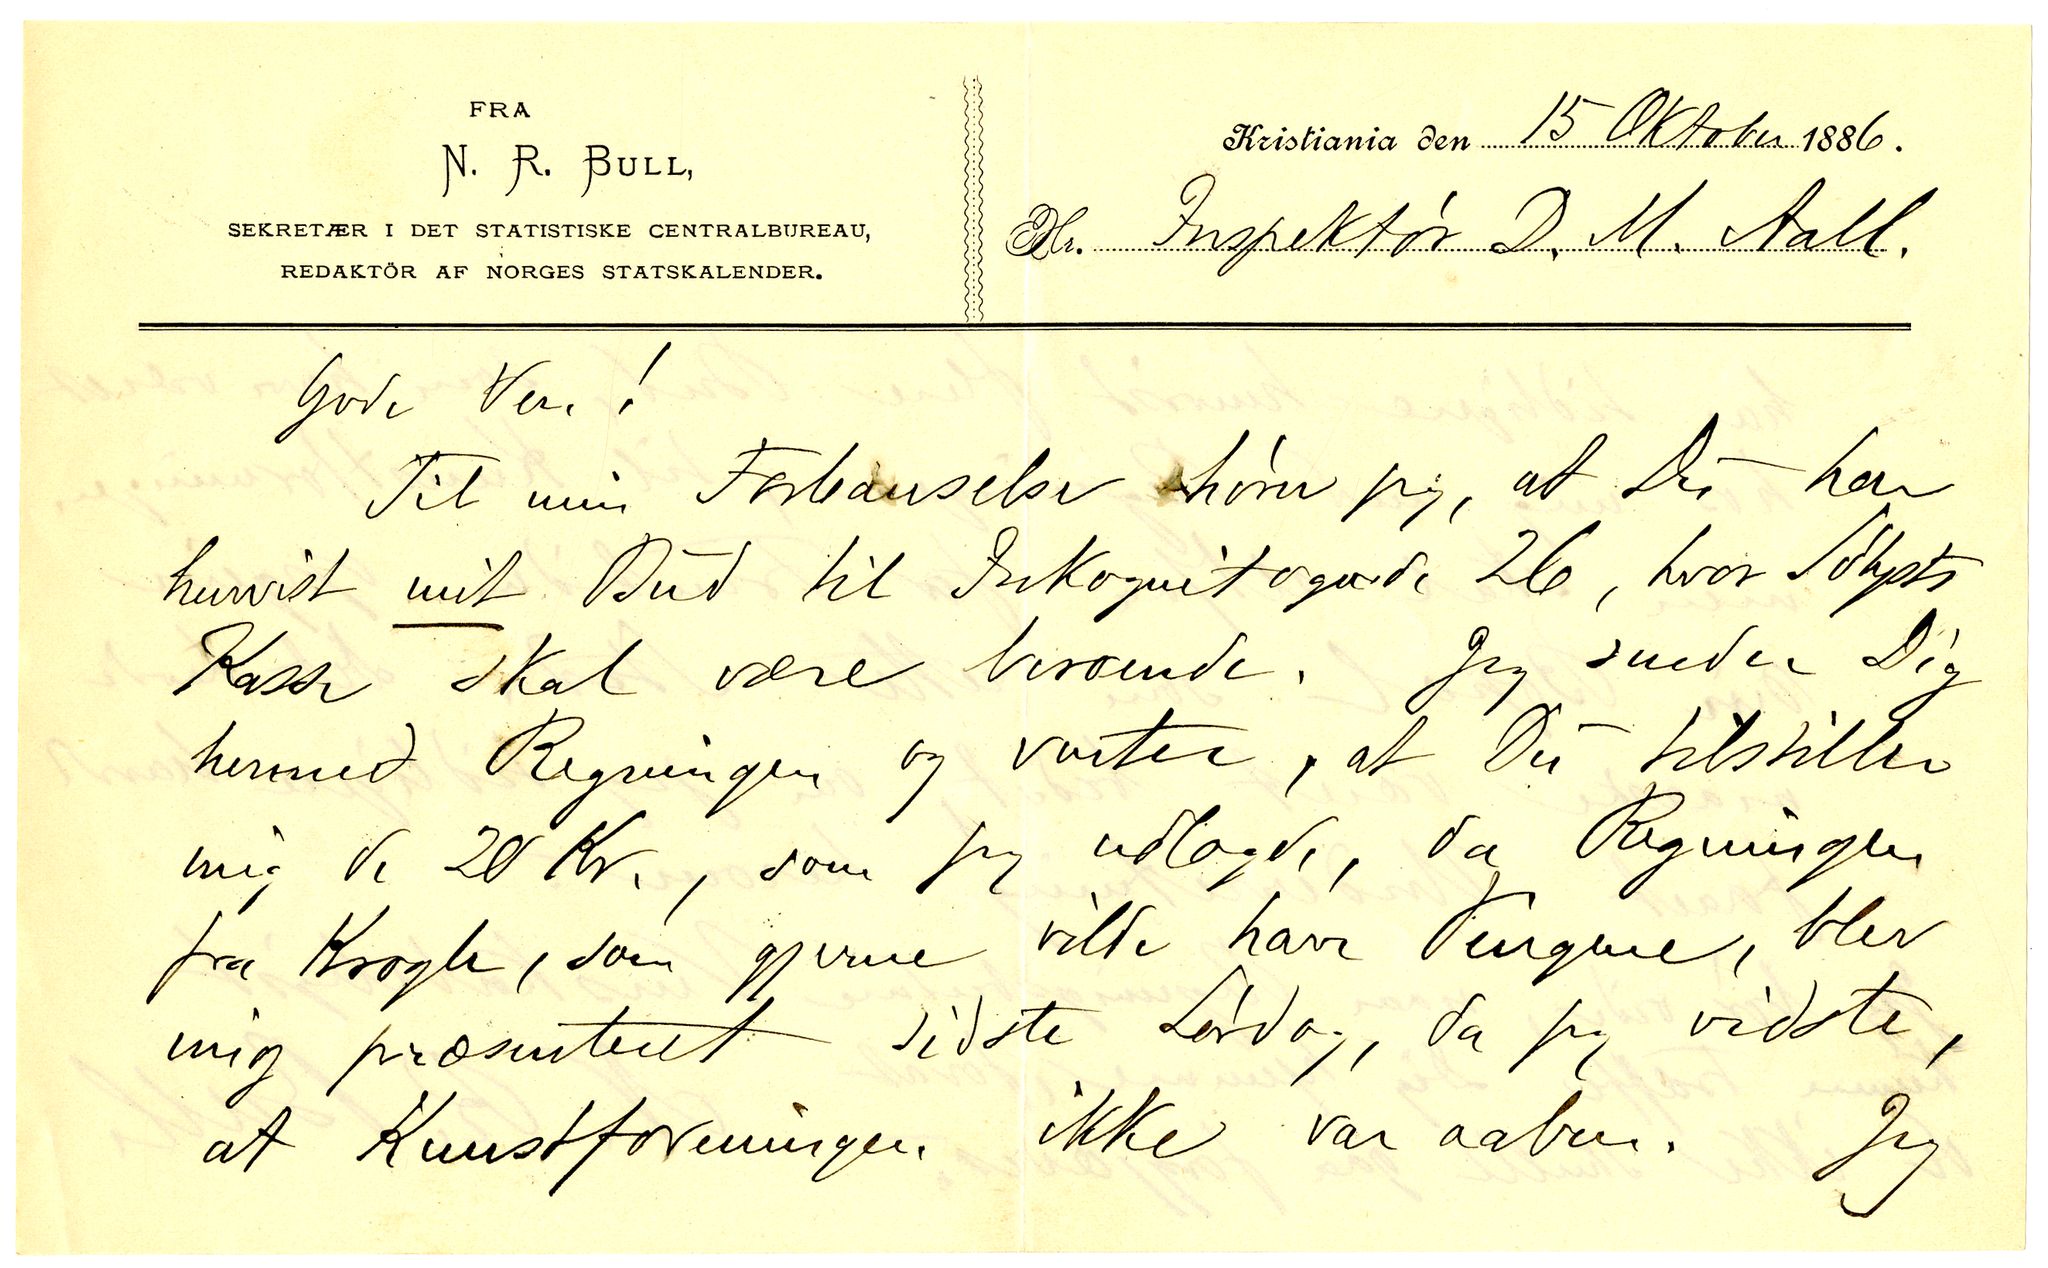 FRA
N. R. BULL,
SEKRETÆR I DET STATISTISKE CENTRALBUREAU,
REDAKTÖR AF NORGES STATSKALENDER.
Kristiania den 15 Oktober 1886.
Hr. Inspektör D. M. Aall.
Gode Ven!
Til min Forbauselse hörer jeg, at Du har
henvist mit Bud til Inkognitogade 26, hvor
Kasse skal være beroende. Jeg sender Dig
hermed Regningen og venter, at Du tilstiller
mig de 20 Kr., som jeg udlagde, da Regningen
fra Krogh, som gjerne vilde have Pengene, blev
mig præsenteret sidste Lördag, da jeg vidste,
at Kunstforeningen ikke var aaben. Jeg